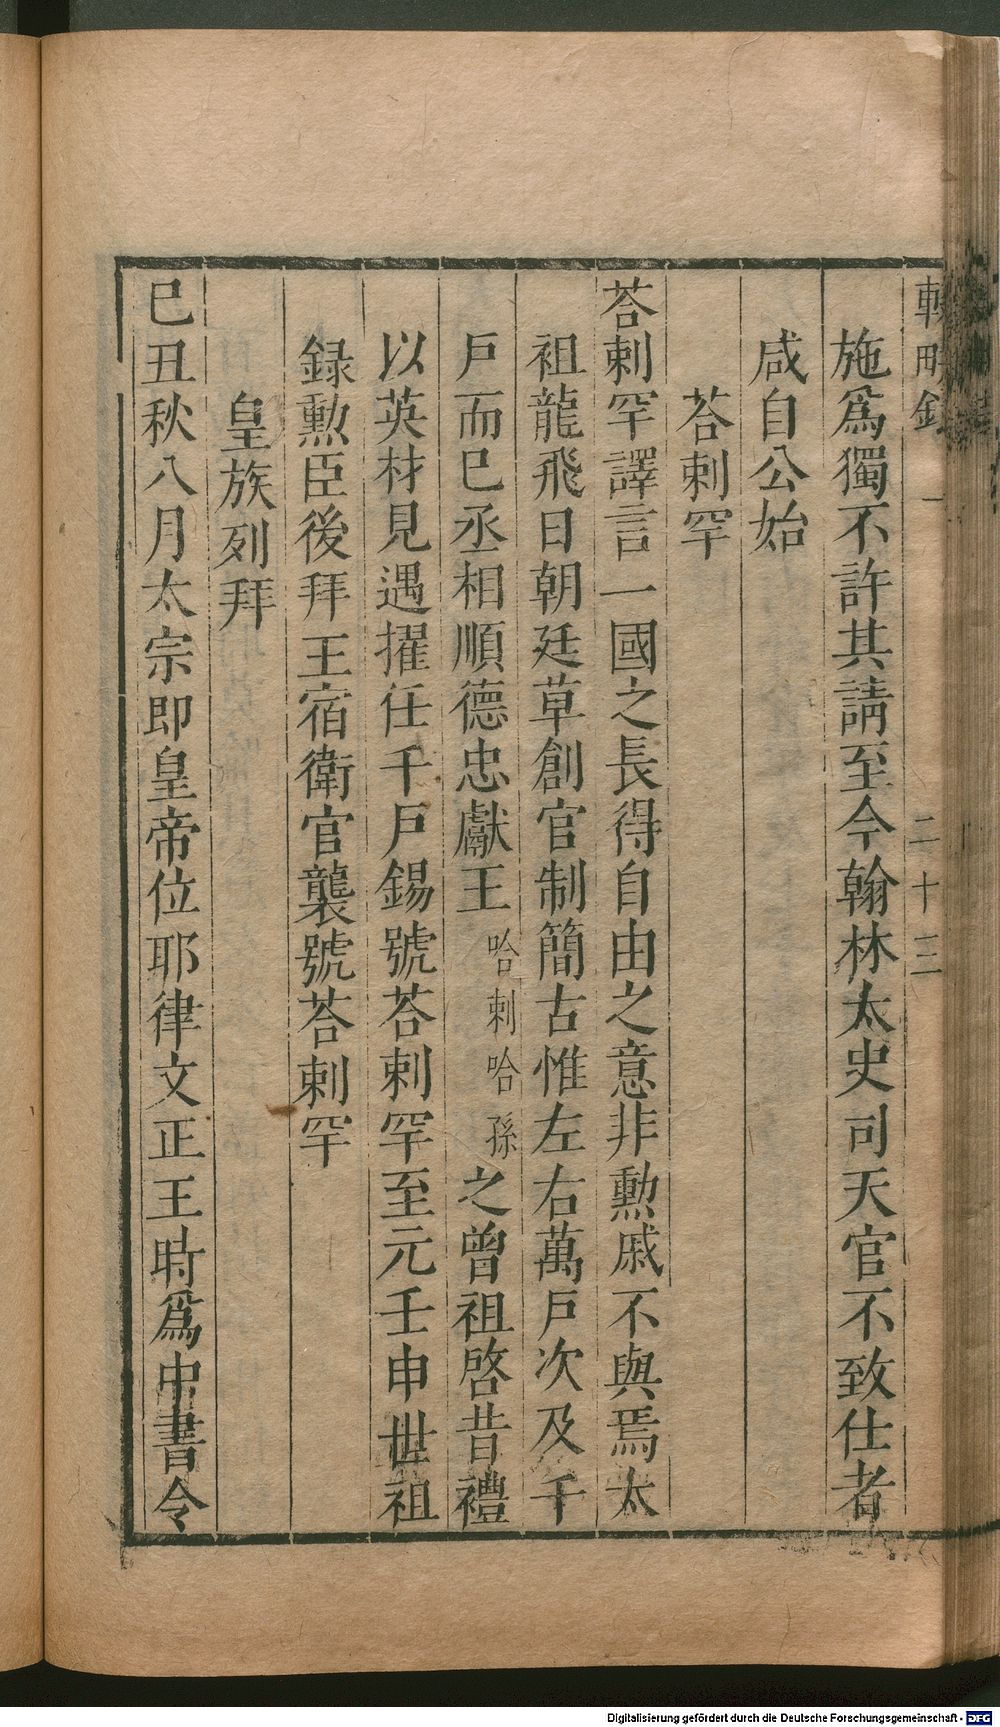 輟畊錄 一 二十三
施爲獨不許其請至今翰林太史司天官不致仕者
咸自公始
荅剌罕
荅剌罕譯言一國之長得自由之意非勲戚不與焉太
祖龍飛日朝廷草創官制簡古惟左右萬戶次及千
戶而巳丞相順德忠獻王哈剌哈孫之曾祖啓昔禮
以英材見遇擢任千戶錫號荅剌罕至元壬申世祖
録勲臣後拜王宿衛官襲號荅剌罕
皇族列拜
巳丑秋八月太宗即皇帝位耶律文正王時爲中書令
Digitalisierung gefördert durch die Deutsche Forschungsgemeinschaft - DFG